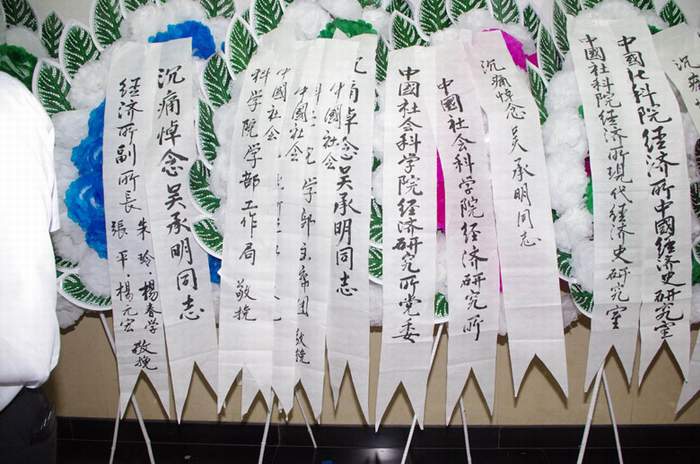 经济所副所长 朱玲·杨春学 张平·杨元宏 敬挽
沉痛悼念吴承明同志
科学院学部工作局 敬挽
中國社会
中國社会
学部主席团 敬挽
中國社会
悼念吴承明同志
中國社会科学院经济研究所党委
中國社会科学院经济研究所
沉痛悼念吴承明同志
中國社科院经济所现代经济史研究室
中國社科院经济所中国经济史研究室
沉